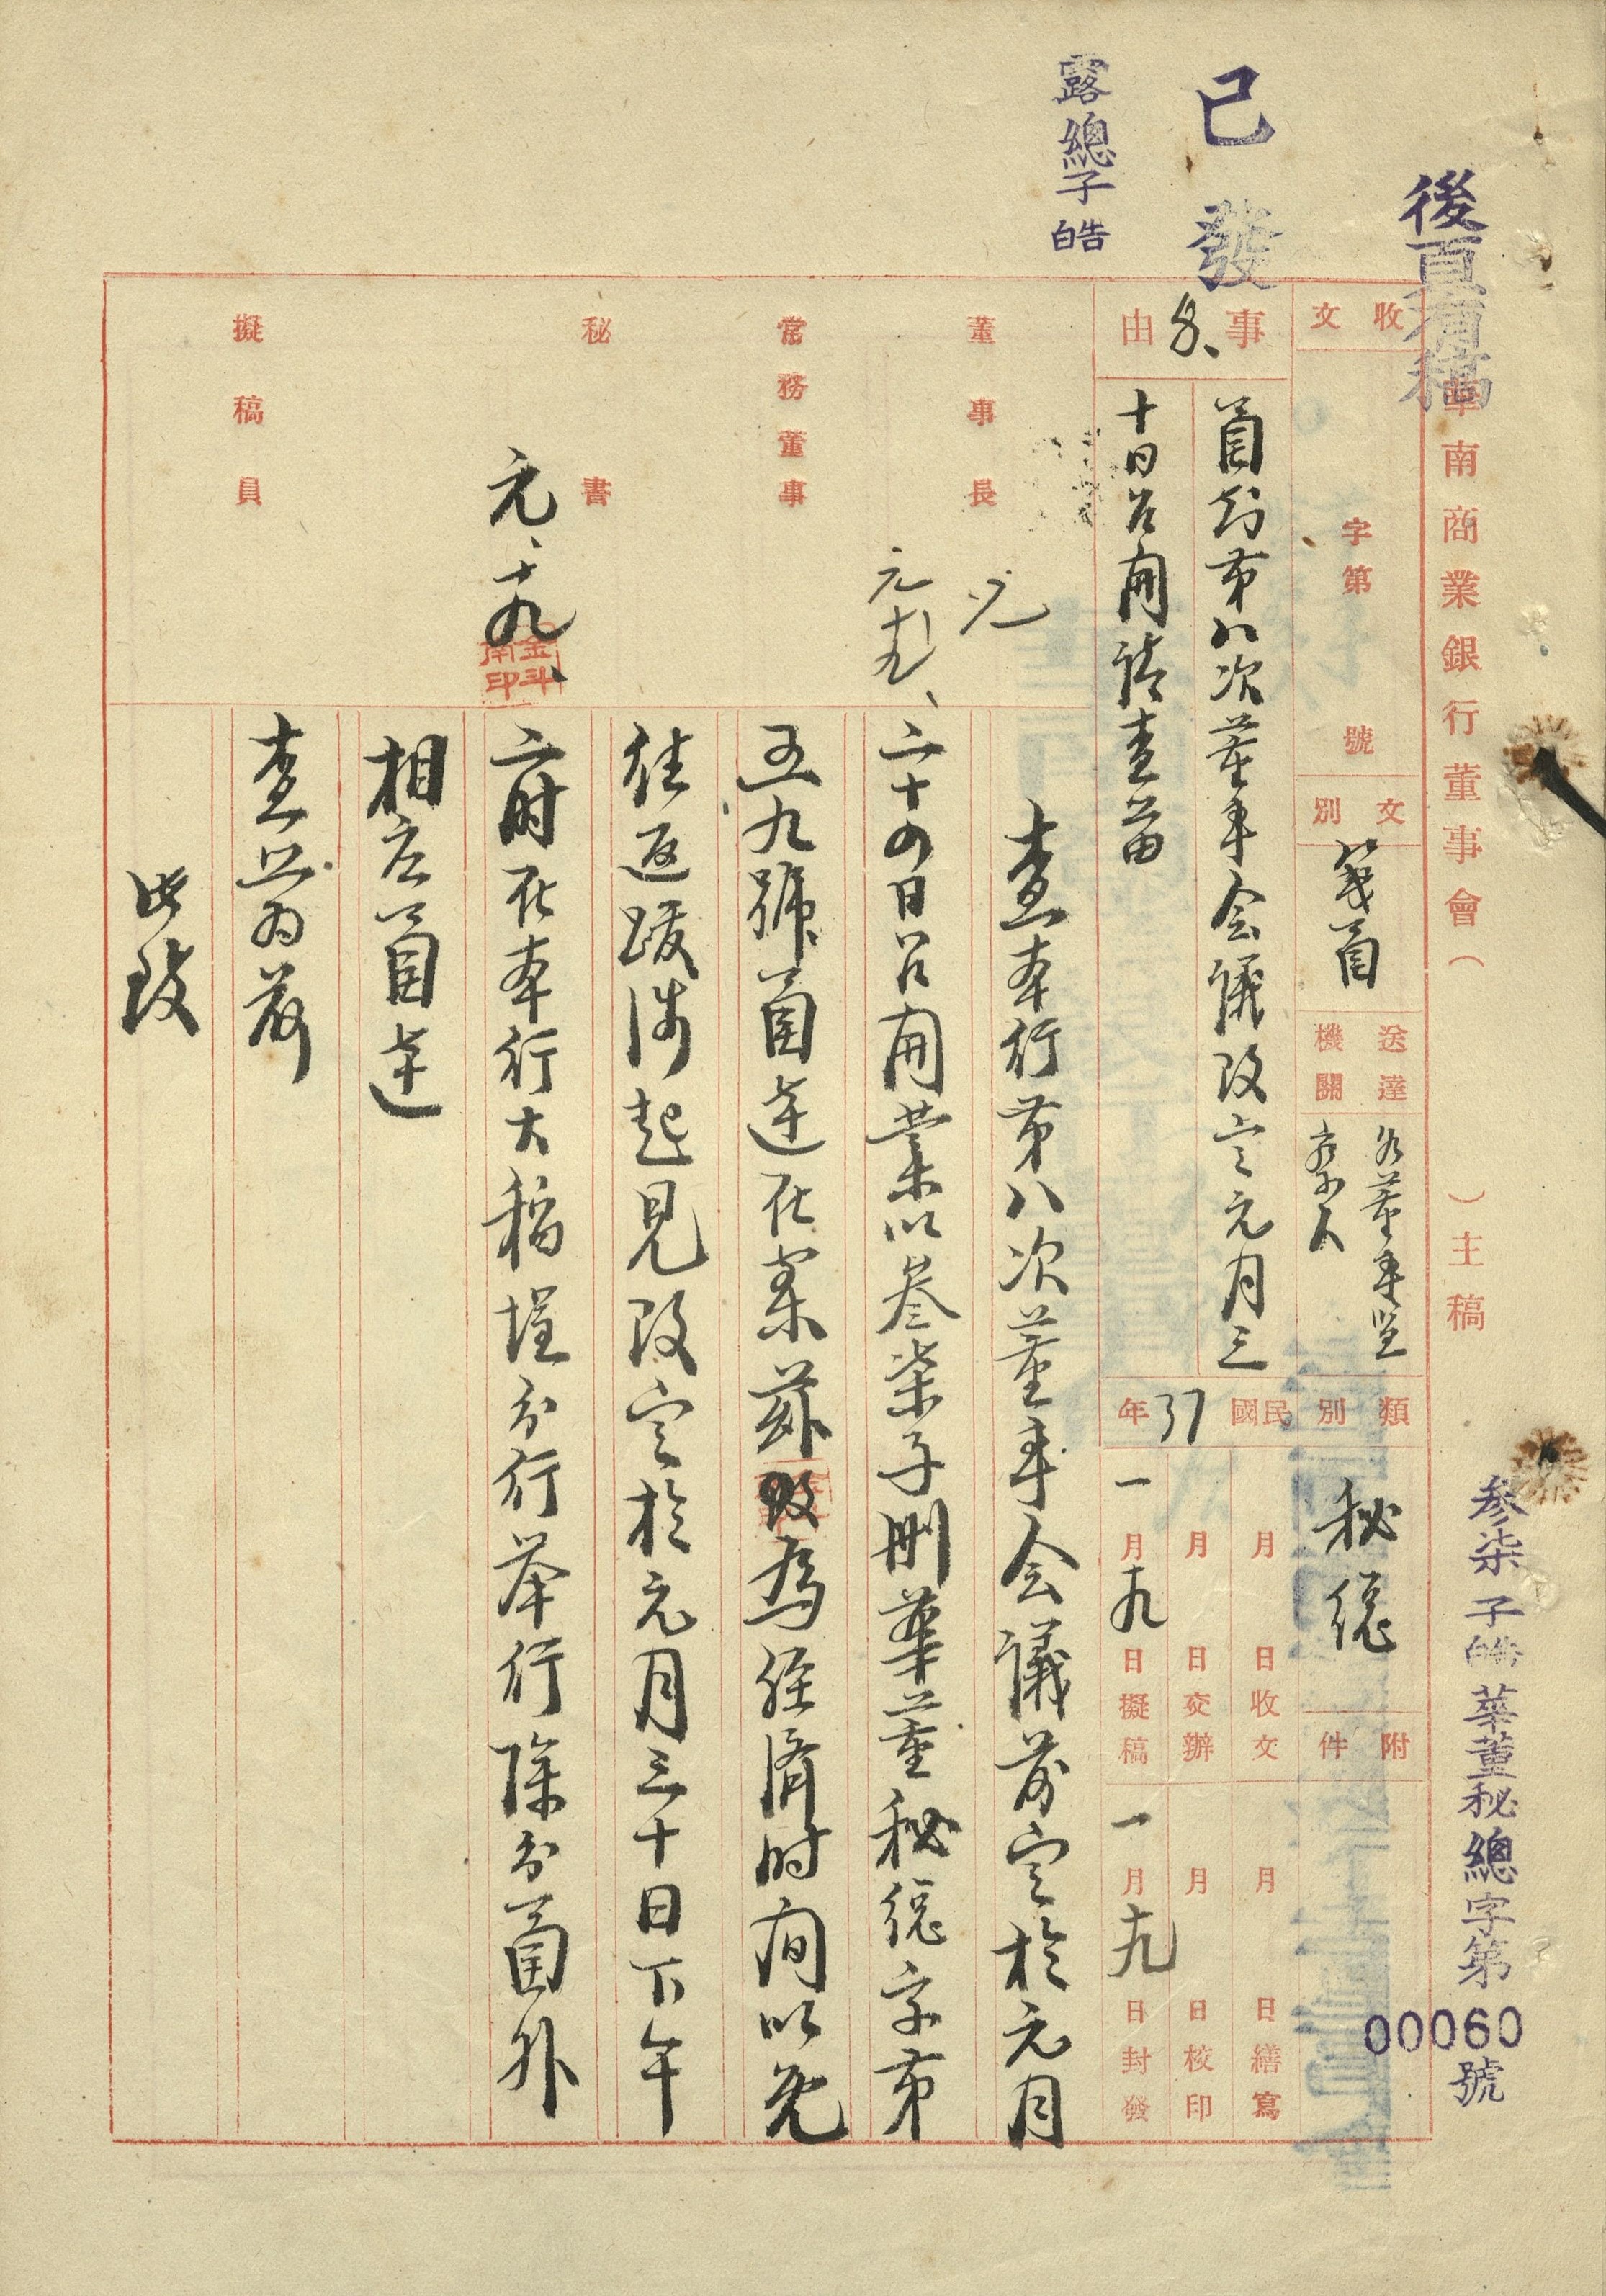 後頁有稿
已發
露總子皓
華南商業銀行董事會（　　）主稿
參柒子皓華董秘總字第00060號
收文　字第　號
文別　箋函
送達機關　各董事監察人
類別　秘總
附件
事由　為函知第八次董事会議改定元月三
十日召開請查照
民國37年
月　日收文
月　日交辦
一月十九日擬稿
月　日繕寫
月　日校印
一月十九日封發
董事長
元十九、
常務董事
秘書
元、十九、
擬稿員
查本行第八次董事会議前定於元月
二十四日召開業以叁柒子刪華董秘總字第
五九號函達在案茲為經濟時間以免
往返跋涉起見改定於元月三十日下午
二时在本行大稻埕分行举行除分函外
相应函達
查照为荷
此致